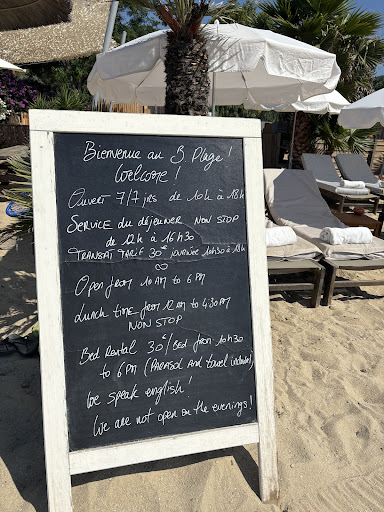 Bienvenue au B. Plage !
Welcome !
Ouvert 7/7 jrs de 10h à 18h
Service du déjeuner NON STOP
de 12h à 16h30
TRANSAT TARIF 30€ journée 10h30 à 18h
∞
Open from 10 AM to 6 PM
Lunch time from 12 AM to 4:30 PM
NON STOP
Bed Rental 30€/Bed from 10h30
to 6 PM (PARASOL AND towel included)
We speak english !
We are not open on the evenings !